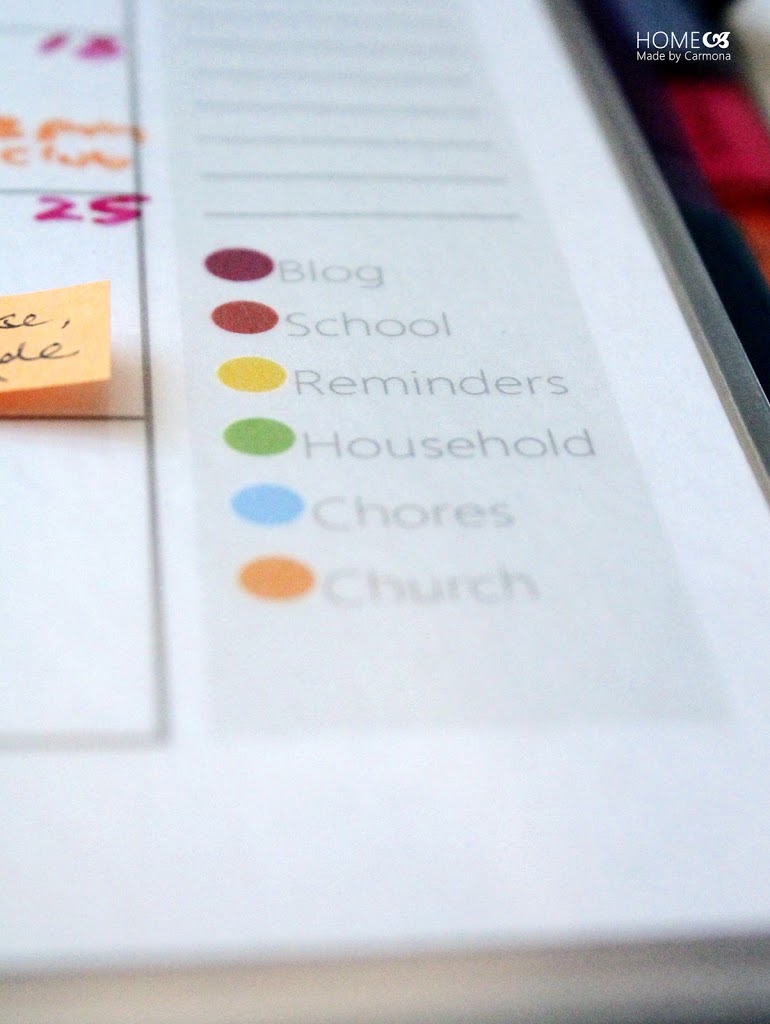 HOME
Made by Carmona
18
25
Blog
School
Reminders
Household
Chores
Church